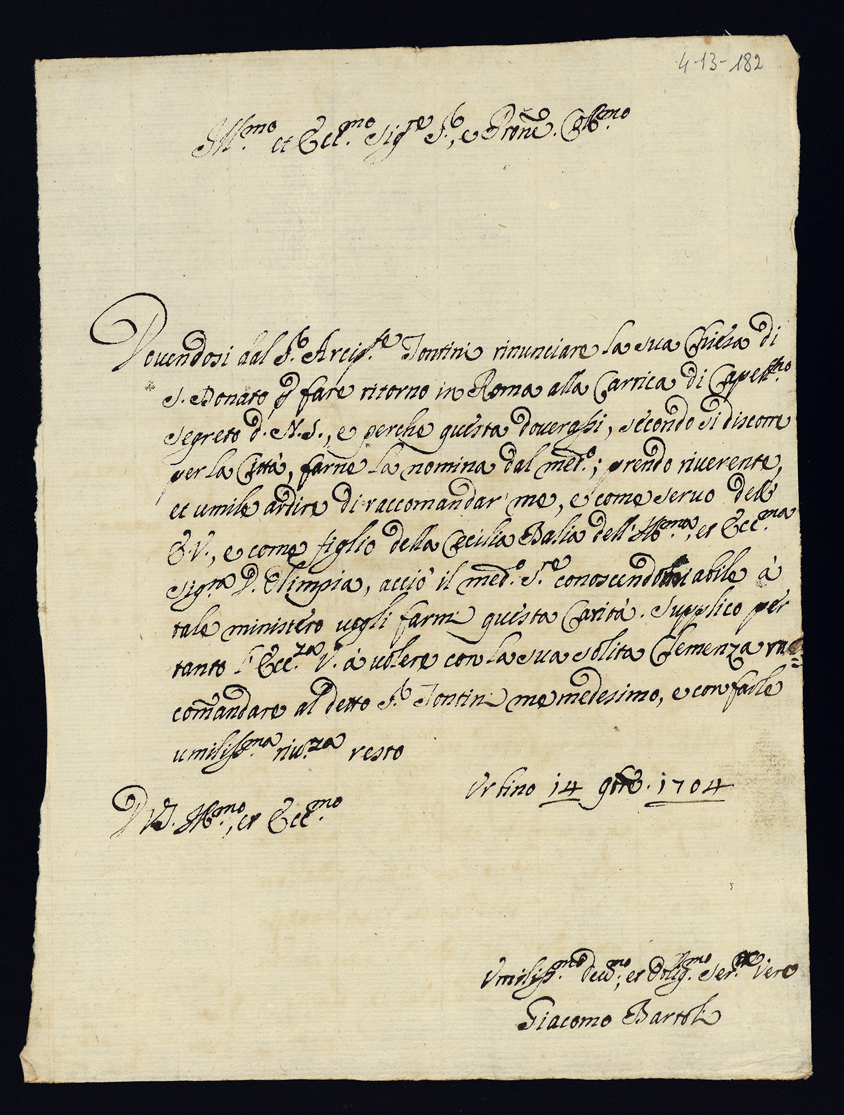 4-13-182
Ill.mo et Ecc.mo Sig.re S.r, e Prone. Col.mo
Douendosi dal S.r Arcip.te Tontini rinunciare la sua Chiesa di
S. Donato p fare ritorno in Roma alla Carrica di Capell.no
segreto d. N. S., e perche questa douerassi, secondo si discorre
per la Città, farne la nomina dal med.o; prendo riuerente,
et umile ardire di raccomandar me, e come seruo dell'
E. V., e come figlio della Cecilia Balia dell' Ill.ma, et Ecc.ma
Sig.ra D. Olimpia, acciò il med.o S.re conoscendomi abile à
tale ministero uogli farmi questa Carità. Supplico per
tanto l' Ecc.za V. à uolere con la sua solita Clemenza rac=
comandare al detto S.r Tontini me medesimo, e con farle
umiliss.ma riu.za resto
Urbino 14 9bre. 1704
D V. S. Ill.mo, et Ecc.mo
Umiliss.mo Deuo.mo, et Oblig.mo Ser.re Vero
Giacomo Bartoli